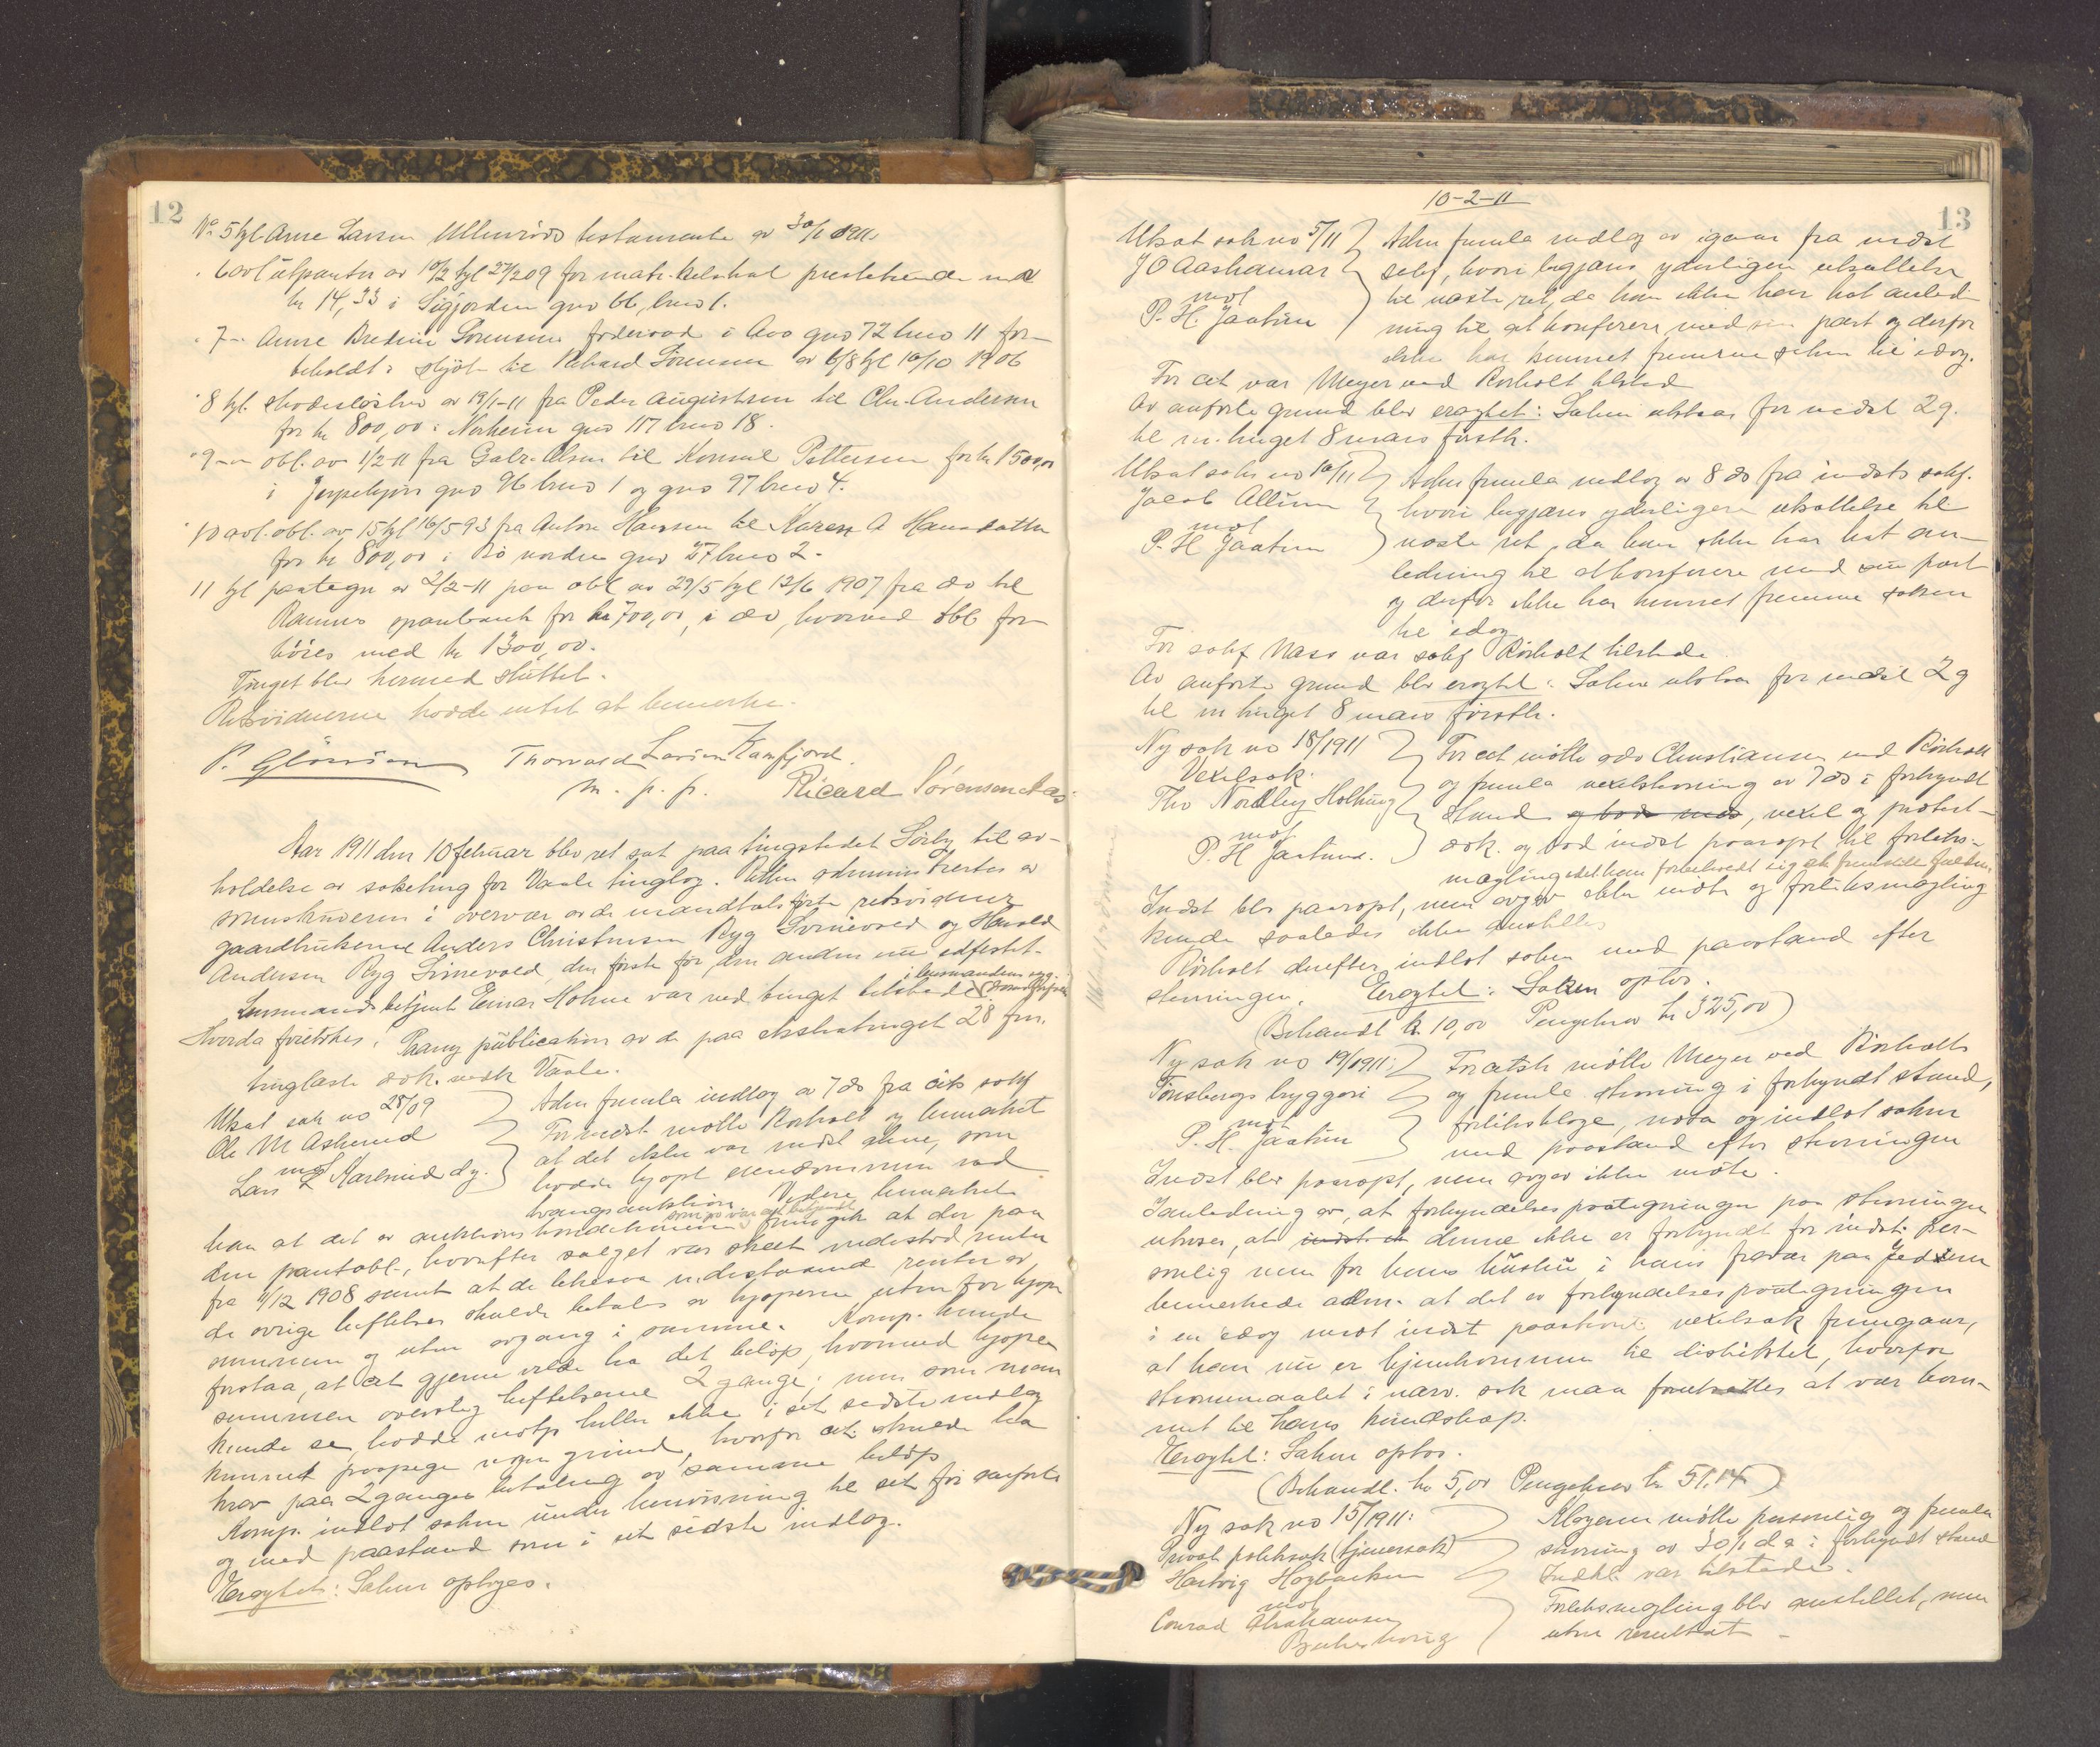 12
No 5 tgl. Anne Larsen Ullenrøds testamente av 30/1 1911
" 6 avl utpantn av 10/2 tgl 27/2 09 for matr. kelskat præstekende m. v
kr 14,33 i Sigjorden gno 66, bno 1.
" 7 - Anne Bredine Sørensens føderaad i Aas gno 72 bno 11 for-
beholdt i skjøte til Rikard Sørensen av 6/8 tgl 10/10 1906
" 8 tgl. skadesløsbrev av 19/1-11 fra Peder Augustsen til Chr. Andersen
for kr 800,00 i Norheim gno 117 bno 18.
" 9 - " obl. av 1/2-11 fra Gabr. Olsen til Konsul Pettersen for kr 1500,00
i Jerpekjøn gno 96 bno 1 og gno 97 bno 4.
" 10 avl. obl. av 15 tgl 16/5 93 fra Anton Hansen til Karen A Hansdatter
for kr 800,00 i Bø nordre gno 27 bno 2.
11 tgl paategn av 2/2-11 paa obl av 29/5 tgl 12/6 1907 fra do til
Ramnes sparebank for kr 700,00, i do, hvorved obl for-
høies med kr 1300,00.
Tinget blev hermed sluttet.
Retsvidnerne hadde intet at bemerke.
P. Glørsen Thorvald Larsen Ramfjord.
m. p. p. Ricard Sørensen Aas
Aar 1911 den 10 februar blev ret sat paa tingstedet Sørby til av-
holdelse av saketing for Vaale tinglag. Retten administrertes av
sorenskriveren i overvær av de mandtalsførte retsvidner
gaardbrukerne Anders Christensen Ryg Svinevold og Harald
Andersen Ryg Svinevold, den første før, den anden nu edfestet.
Lensmandsbetjent Einar Holme var ved tinget tilstede i lensmandens syg-
Hvorda foretokes: Paany publication av de paa ekstratinget 28 f.m.
tinglæste dok. vedk Vaale.
Utsat sak no 28/09
Ole M Askerud
mot
Lars L Karlsrud d.y.
Adm fremla indlæg av 7 ds fra cits sakf
For indst møtte Rørholt og bemerket
at det ikke var indst alene, som
hadde kjøpt eiendommen ved
tvangsauktion. Videre bemerket
han at det av auktionskonditionerne som jo var at betragte fremgik at der paa
den pantobl., hvorefter salget var skeet indestod, renter
fra 1/12 1908 samt at de likesaa indestaaende renter av
de øvrige heftelser skulde betales av kjøperne uten for kjøpe
summen og uten avgang i samme. Komp. kunde
forstaa, at cit gjerne vilde ha det beløp, hvormed kjøpe
summen oversteg heftelserne 2 gange; men som man
kunde se, hadde motp heller ikke i sit sidste indlæg
kunnet paapege nogen grund, hvorfor cit skulde ha
krav paa 2 ganges betaling av samme beløp
Komp. indlot saken under henvisning til sit før anførte
og med paastand som i sit sidste indlæg.
Eragtet: Saken optages.
10-2-11
13
Utsat sak no 5/11
J O Aashamar
mot
P. H. Jaatun
Adm fremla indlæg av igaar fra indst
sakf, hvori begjæres yderligere utsættelse
til næste ret, da han ikke har hat anled-
ning til at konferere med sin part og derfor
ikke har kunnet fremme saken til idag.
For cit var Meyer ved Rørholt tilsted
Av anførte grund blev eragtet: Saken utstaar for indst 2 g.
til m. tinget 8 mars førstk.
Utsat sak no 10/11
Jacob Allum
mot
P. H Jaatun
Adm fremla indlæg av 8 ds fra indsts sakf.
hvori begjæres yderligere utsættelse til
næste ret, da han ikke har hat an-
ledning til at konferere med sin part
og derfor ikke har kunnet fremme saken
til idag
For sakf Nass var sakf Rørholt tilstede
Av anførte grund blev eragtet: Saken utstaar for indst 2 g
til m tinget 8 mars førstk.
Ny sak no 18/1911
Vexelsak.
Tho Nordby Holtung
mot
P. H Jaatun.
For cit møtte adv Christiansen ved Rørholt
og fremla vexelstevning av 7 ds i forkyndt
stand og bad ind, vexel og protest-
dok. og bad indst paaropt til forliks-
mægling idet han forbeholdt sig at fremstille
Indst blev paaropt, men avgav ikke møte og forliksmægling
kunde saaledes ikke anstilles
Rørholt derefter indlot saken med paastand efter
stevningen. Eragtet: Saken optas.
(Behandl kr 10,00 Pengekrav kr 325,00)
Ny sak no 19/1911:
Tønsbergs bryggeri
mot
P. H. Jaatun
For citsk møtte Meyer ved Rørholt
og fremla stevning i forkyndt stand,
forliksklage, nota og indlot saken
med paastand efter stevningen
Indst blev paaropt, men avgav ikke møte.
I anledning av, at forkyndelsespaategningen paa stevningen
utviser, at indst ei denne ikke er forkyndt for indst per-
sonlig men for hans hustru i hans fravær paa Jæderen
bemerkede adm. at det av forkyndelsespaategningen
i en idag mot indst paastevnt vexelsak fremgaar,
at han nu er hjemkommen til distriktet, hvorfor
stevnemaalet i nærv. sak maa forutsættes at være kom-
met til hans kundskap.
Eragtet: Saken optas.
(Behandl. kr 5,00 Pengekrav kr 51.14)
Ny sak no 15/1911:
Privat politisak (tjenersak)
Hartvig Hogbacken
mot
Conrad Abrahamsen
Klageren møtte personlig og fremla
stevning av 30/1 ds i forkyndt stand
Indkl. var tilstede.
Forliksmægling blev anstillet, men
uten resultat -